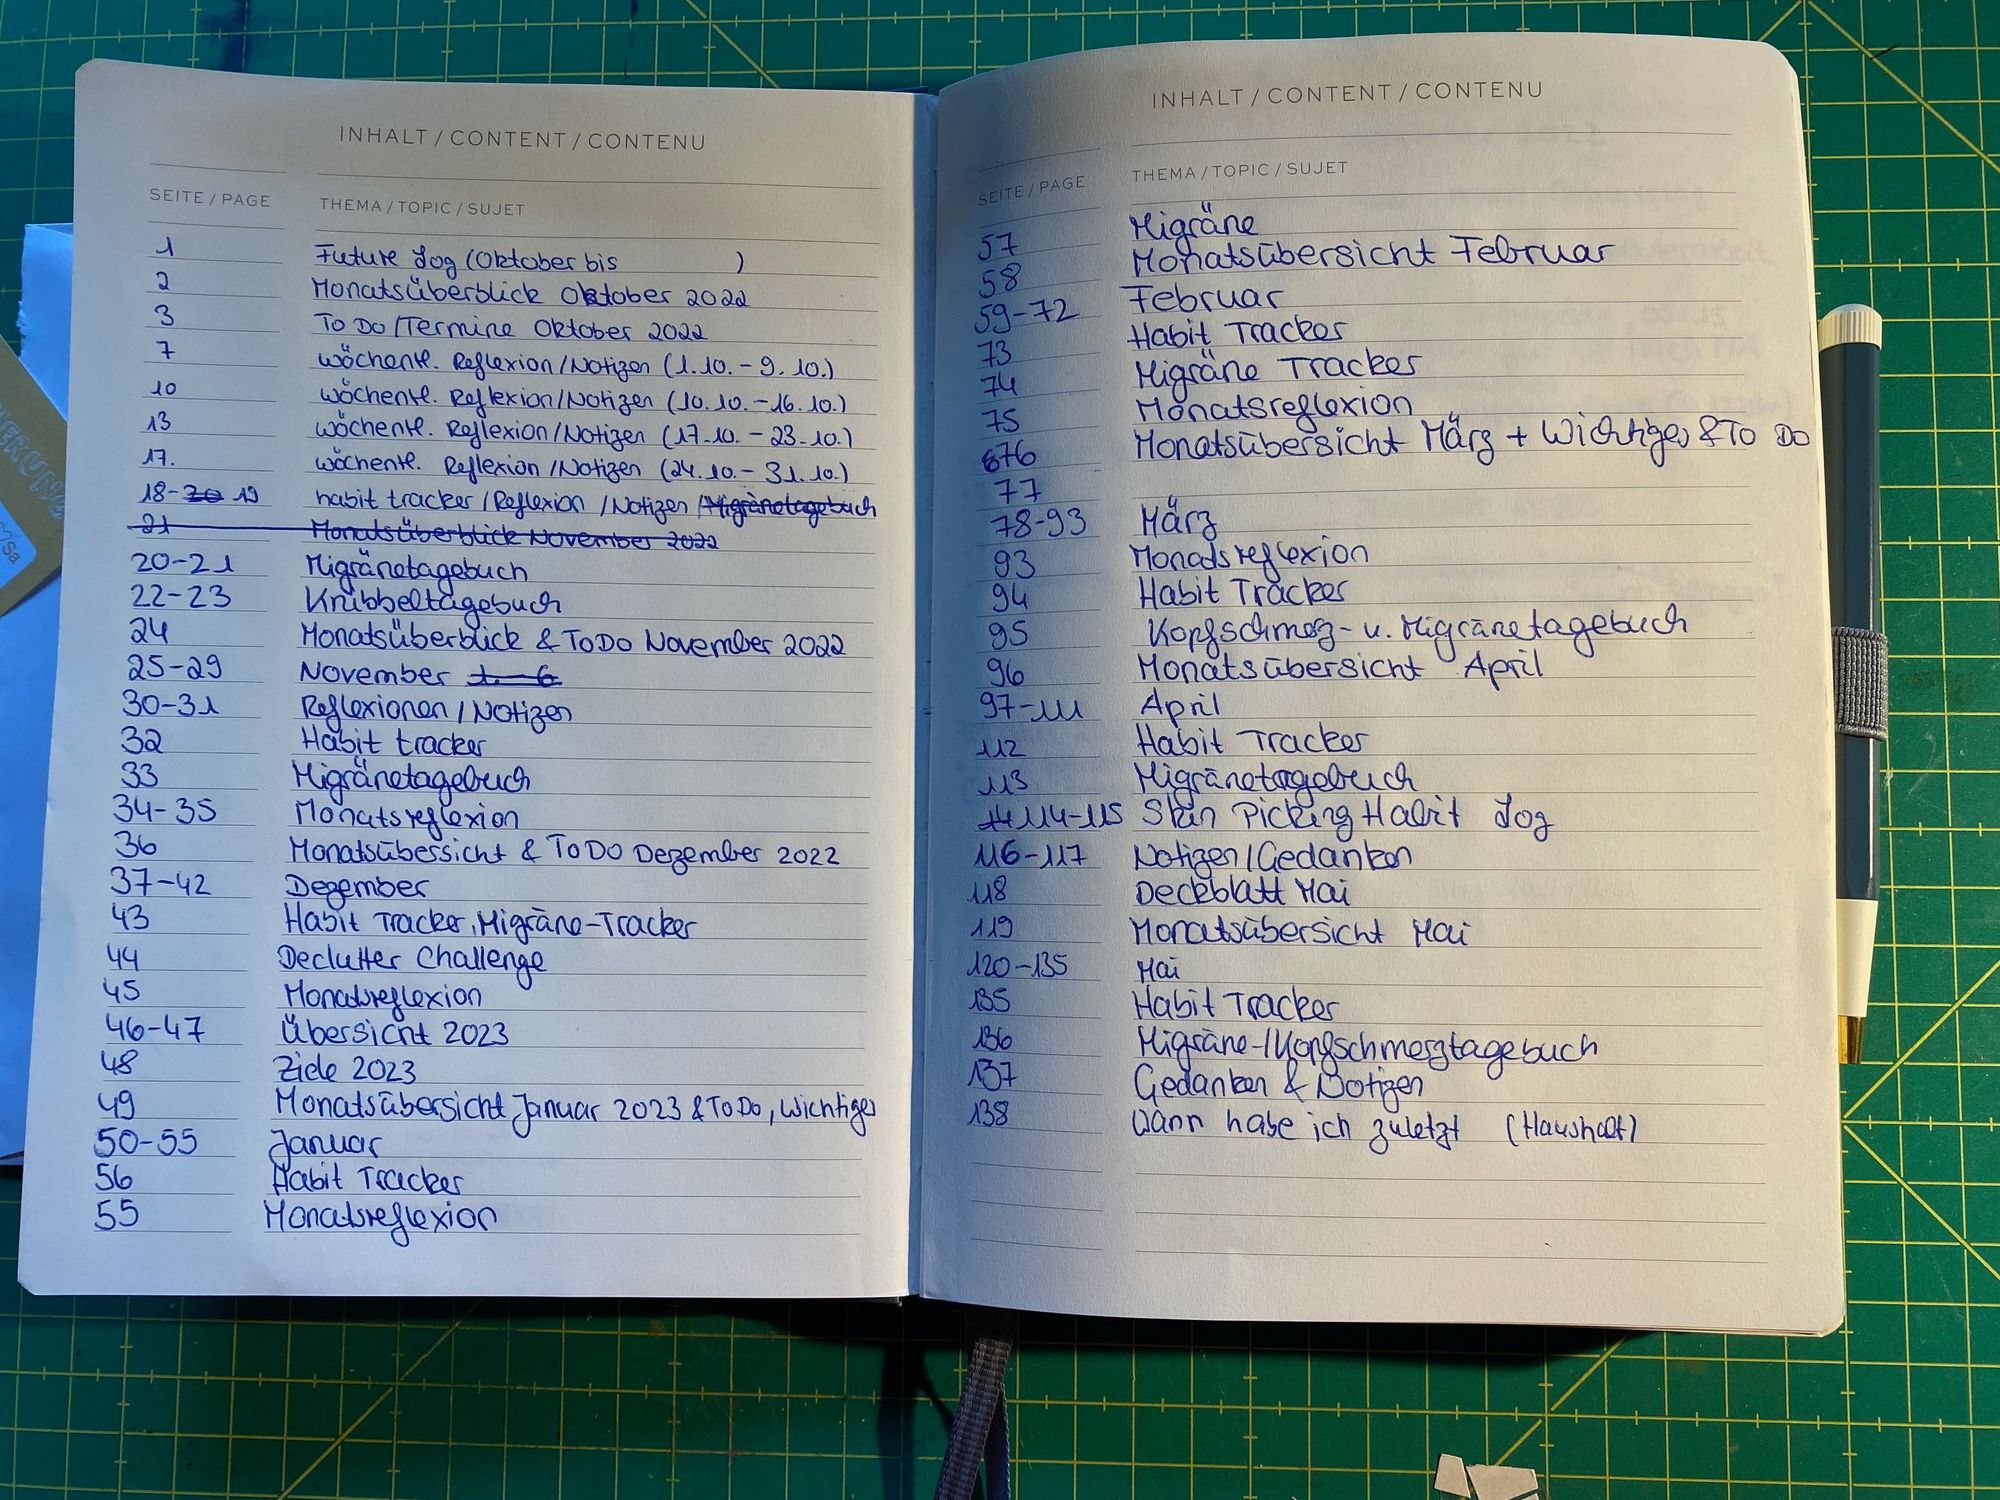 INHALT / CONTENT / CONTENU
SEITE / PAGE THEMA / TOPIC / SUJET
1 Future Log (Oktober bis )
2 Monatsüberblick Oktober 2022
3 To Do / Termine Oktober 2022
7 wöchentl. Reflexion / Notizen (1.10. - 9.10.)
10 wöchentl. Reflexion / Notizen (10.10. - 16.10.)
13 wöchentl. Reflexion / Notizen (17.10. - 23.10.)
17. wöchentl. Reflexion / Notizen (24.10. - 31.10.)
18-20 19 habit tracker / Reflexion / Notizen / Migränetagebuch
21 Monatsüberblick November 2022
20-21 Migränetagebuch
22-23 Knibbeltagebuch
24 Monatsüberblick & To Do November 2022
25-29 November 1. - 6.
30-31 Reflexionen / Notizen
32 Habit tracker
33 Migränetagebuch
34-35 Monatsreflexion
36 Monatsübersicht & To Do Dezember 2022
37-42 Dezember
43 Habit Tracker, Migräne-Tracker
44 Declutter Challenge
45 Monatsreflexion
46-47 Übersicht 2023
48 Ziele 2023
49 Monatsübersicht Januar 2023 & To Do, Wichtiges
50-55 Januar
56 Habit Tracker
55 Monatsreflexion
INHALT / CONTENT / CONTENU
SEITE / PAGE THEMA / TOPIC / SUJET
57 Migräne
58 Monatsübersicht Februar
59-72 Februar
73 Habit Tracker
74 Migräne Tracker
75 Monatsreflexion
76 Monatsübersicht März + Wichtiges & To Do
77
78-93 März
93 Monatsreflexion
94 Habit Tracker
95 Kopfschmerz- u. Migränetagebuch
96 Monatsübersicht April
97-111 April
112 Habit Tracker
113 Migränetagebuch
114-115 Skin Picking Habit Log
116-117 Notizen / Gedanken
118 Deckblatt Mai
119 Monatsübersicht Mai
120-135 Mai
135 Habit Tracker
136 Migräne-/Kopfschmerztagebuch
137 Gedanken & Notizen
138 Wann habe ich zuletzt (Haushalt)